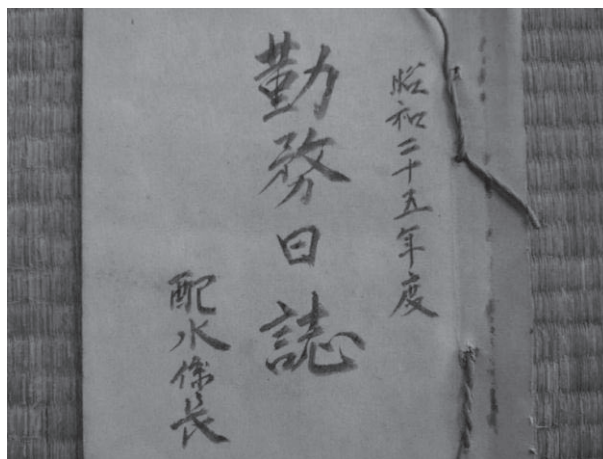 昭和二十五年度
勤務日誌
配水係長